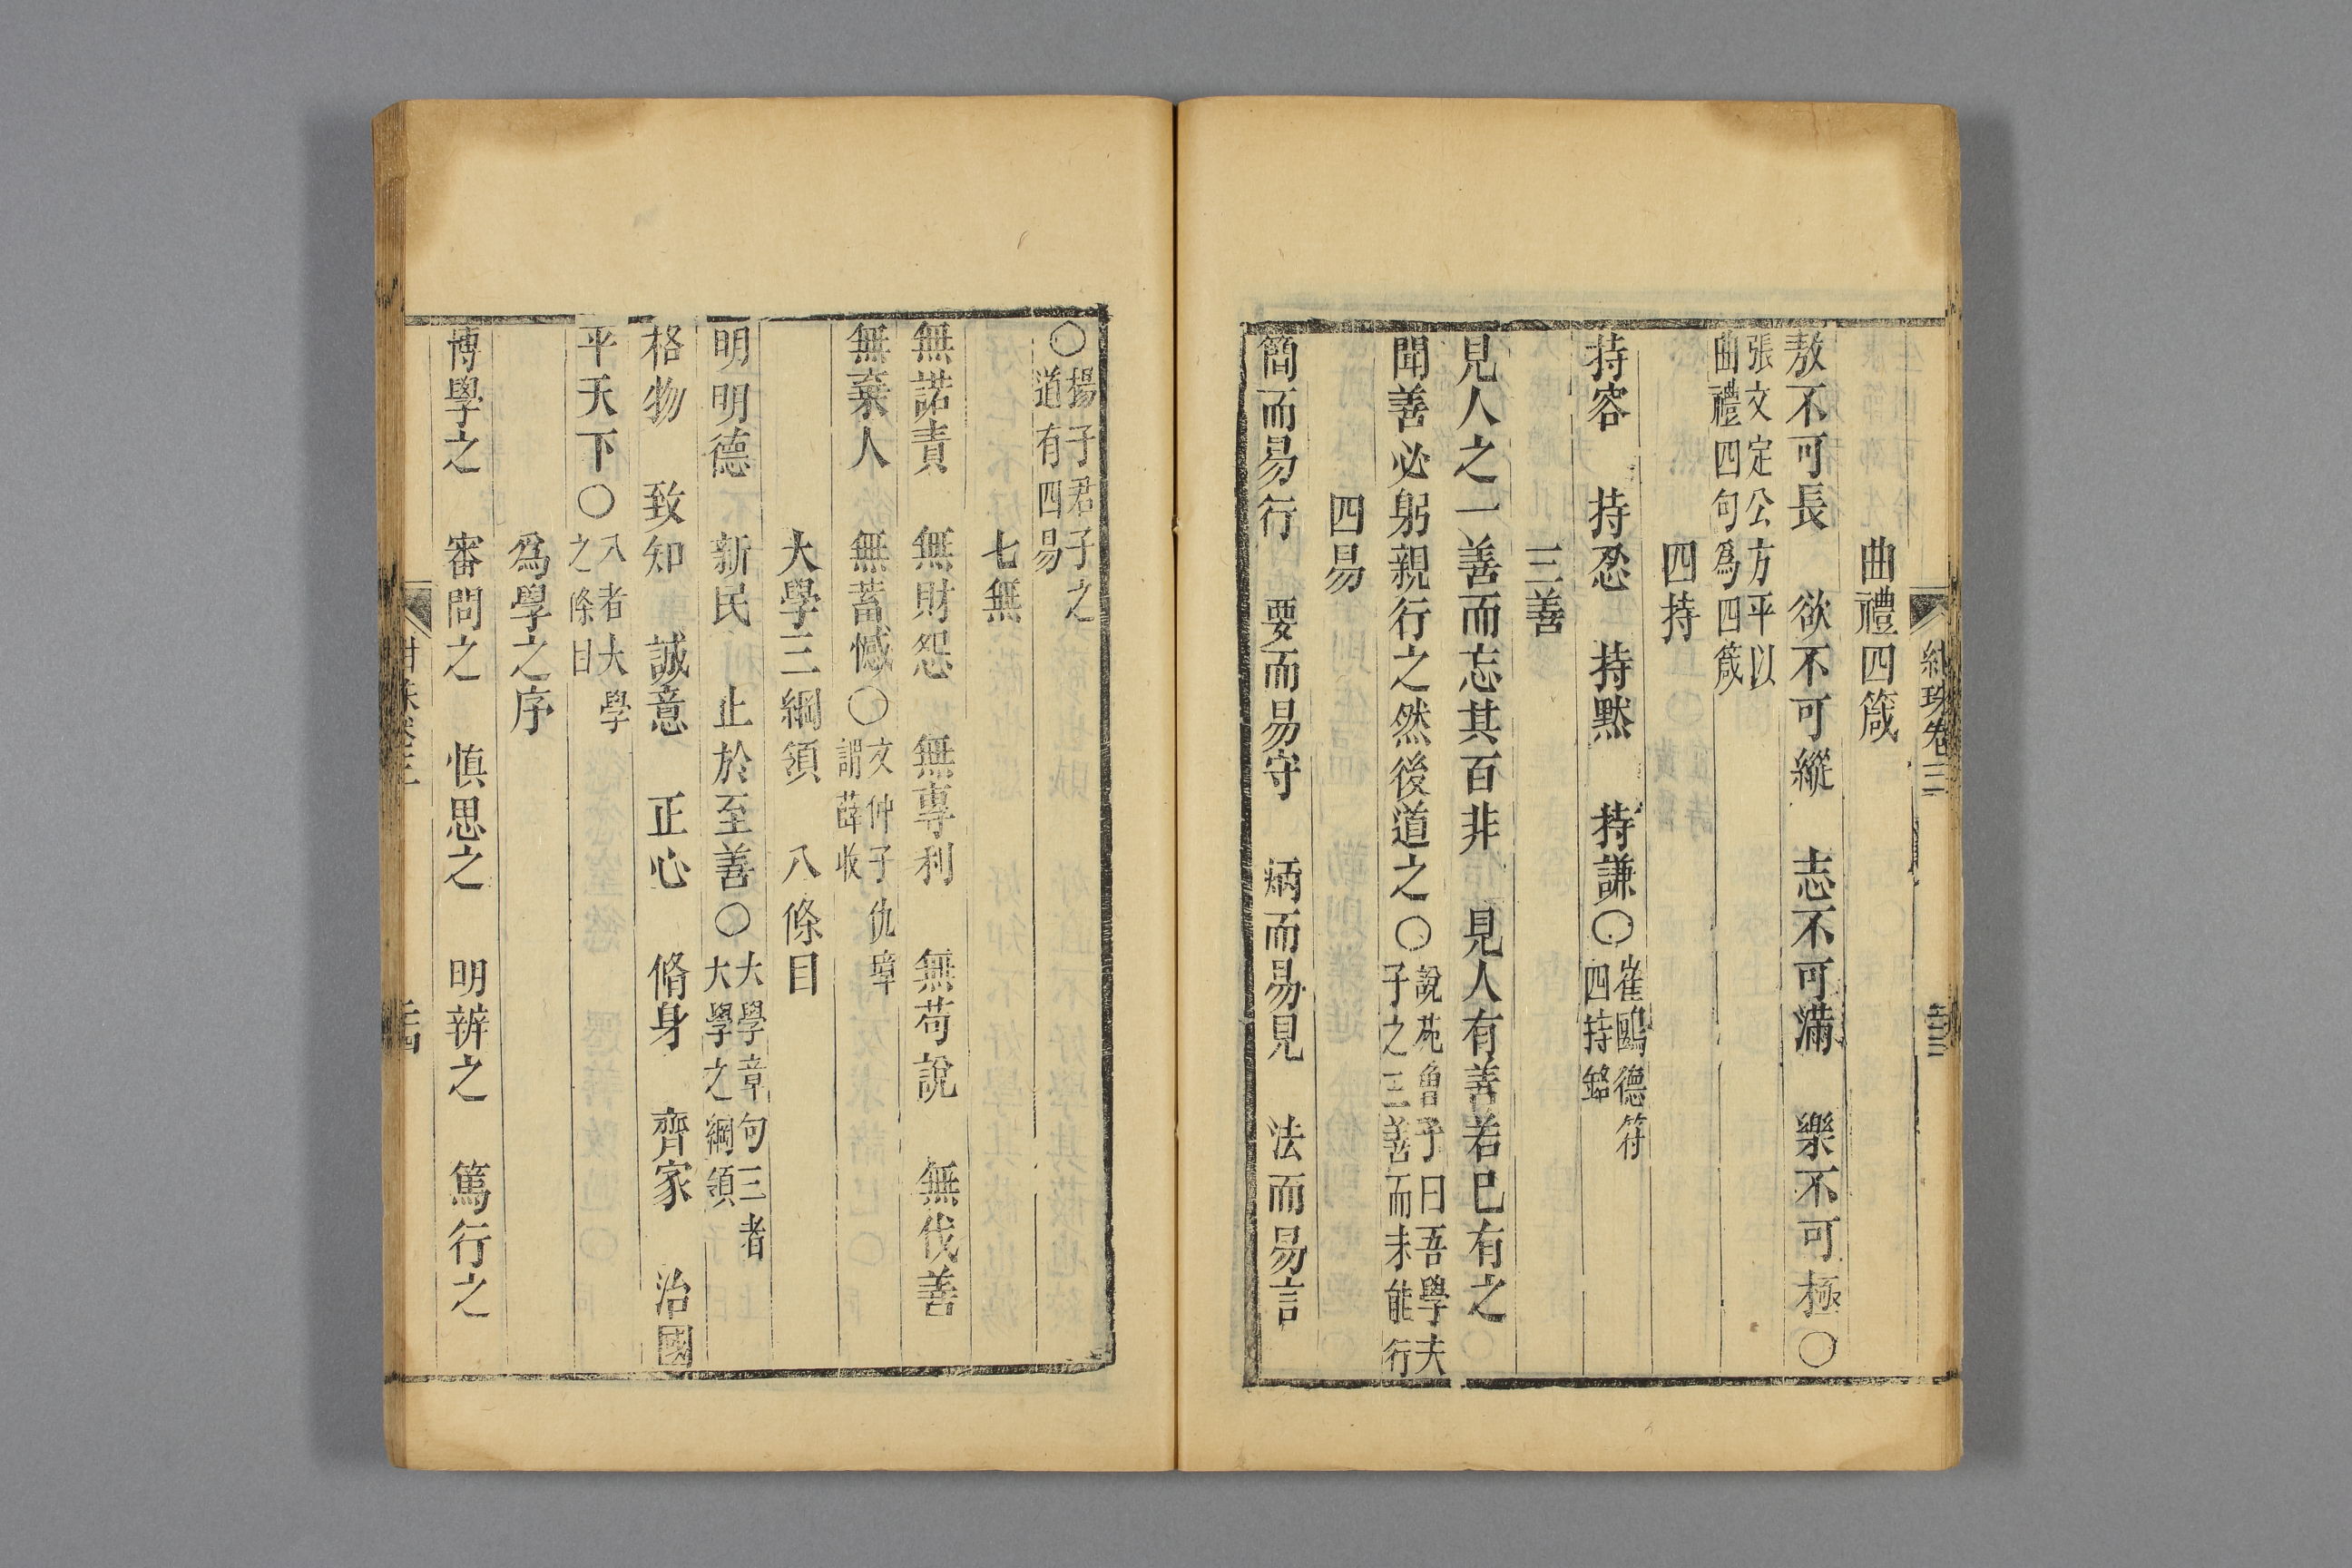 曲禮四箴
敖不可長 欲不可縱 志不可滿 樂不可極○
張文定公方平以
曲禮四句爲四箴
四持
持容 持忍 持黙 持謙○崔鷗德符
四持銘
三善
見人之一善而忘其百非 見人有善若已有之
聞善必躬親行之然後道之○說苑魯子曰吾學夫
子之三善而未能行
四易
簡而易行 要而易守 炳而易見 法而易言
○揚子君子之
道有四易
七無
無諾責 無財怨 無專利 無苟說 無伐善
無棄人 無蓄憾○文仲子仇璋
謂薛收
大學三綱領 八條目
明明德 新民 止於至善○大學章句三者
大學之綱領
格物 致知 誠意 正心 脩身 齊家 治國
平天下○八者大學
之條目
爲學之序
博學之 審問之 慎思之 明辨之 篤行之
珠卷三